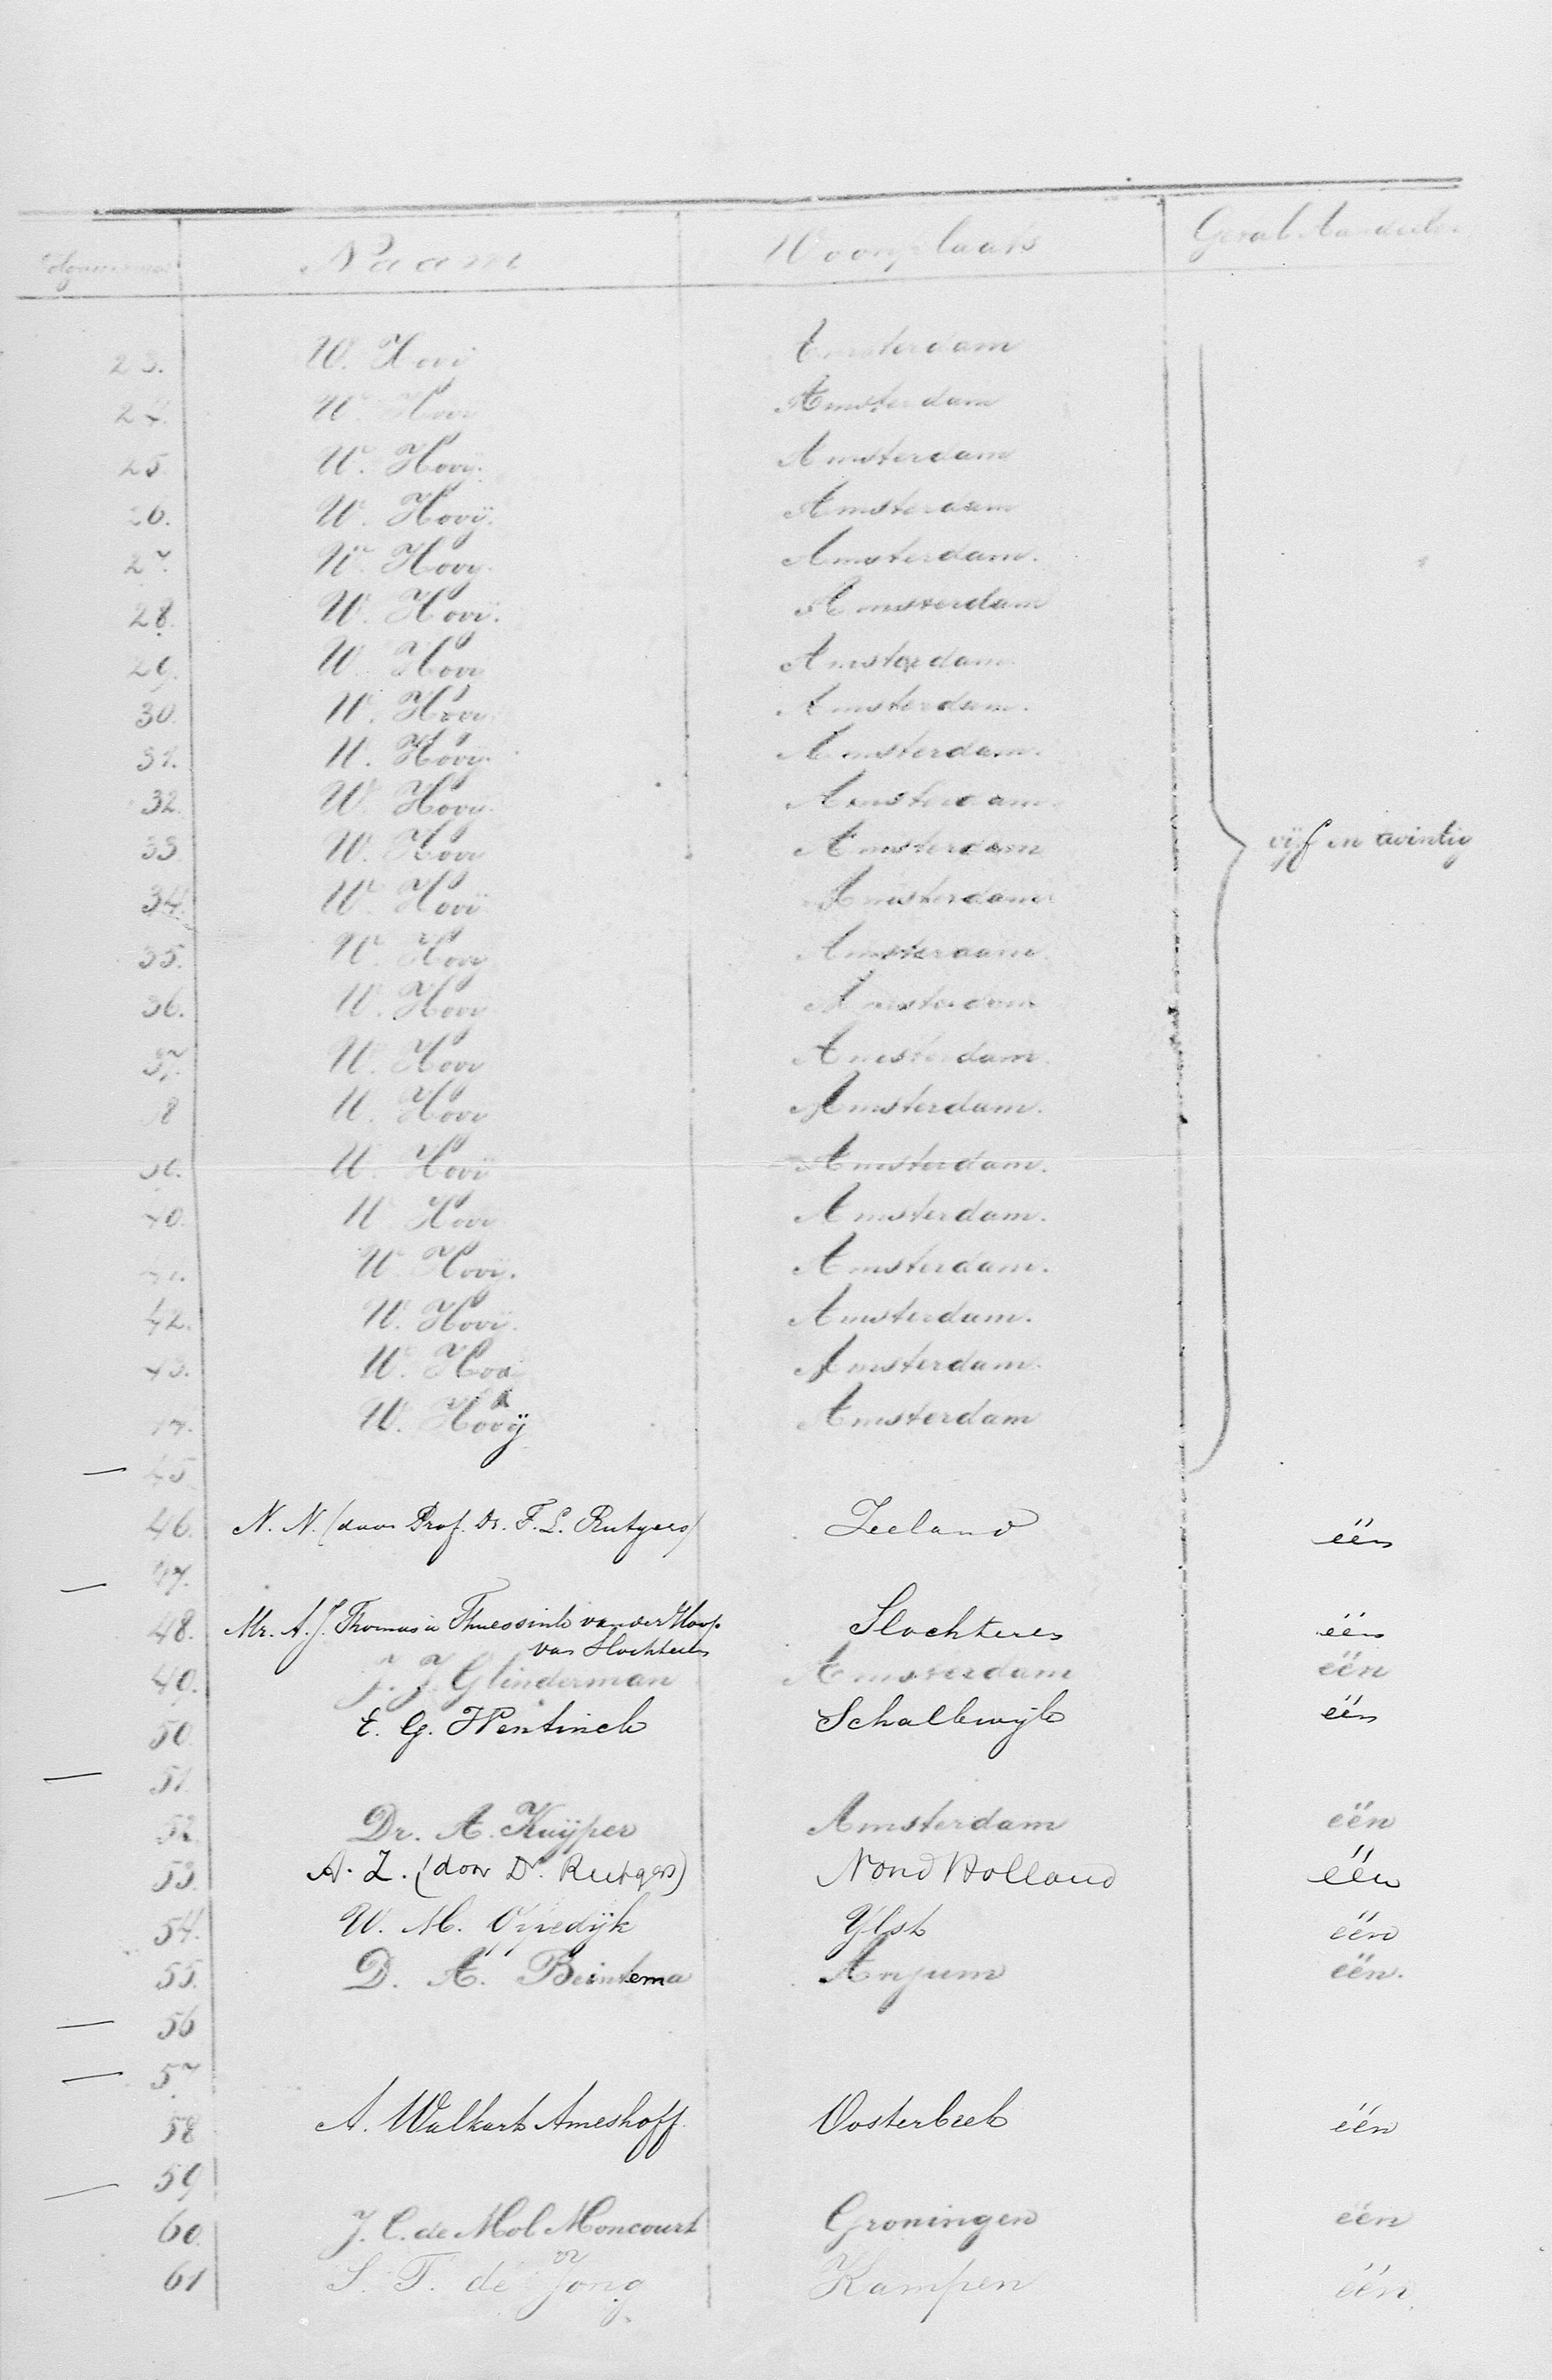 Volgnummer Naam Woonplaats Getal Aandeelen
23. W. Hovÿ Amsterdam
24. W. Hovÿ Amsterdam
25. W. Hovÿ. Amsterdam
26. W. Hovÿ. Amsterdam
27. W. Hovÿ. Amsterdam.
28. W. Hovÿ. Amsterdam
29. W. Hovÿ Amsterdam
30. W. Hovÿ Amsterdam.
31. W. Hovÿ. Amsterdam.
32. W. Hovÿ. Amsterdam
33. W. Hovÿ Amsterdam vijf en twintig
34. W. Hovÿ Amsterdam
35. W. Hovÿ Amsterdam.
36. W. Hovÿ Amsterdam
37. W. Hovÿ Amsterdam.
38 W. Hovÿ Amsterdam.
39. W. Hovÿ Amsterdam.
40. W. Hovÿ Amsterdam.
41. W. Hovÿ. Amsterdam.
42. W. Hovÿ. Amsterdam.
43. W. Hovÿ Amsterdam.
44. W. Hovÿ Amsterdam
— 45
46. N. N. (door Prof. Dr. F. L. Rutgers) Zeeland één
— 47.
48. Mr. A. J. Thomassen à Thuessink van der Hoop Slochteren één
van Slochteren
49. J. J. Glinderman Amsterdam één
50. E. G. Wentinck Schalkwijk één
— 51.
52. Dr. A. Kuÿper Amsterdam één
53. A. Z. (door Dr. Rutgers) Noord Holland één
54. W. M. Oppedijk Ylst één
55. D. A. Beintema Anjum één.
— 56
— 57
58 A. Walkart Ameshoff. Oosterbeek één
— 59
60. J. C. de Mol Moncourt Groningen één
61 S. T. de Jong Kampen één